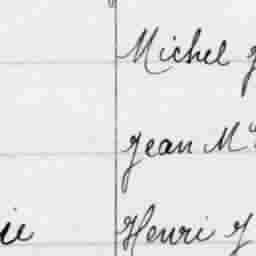 Michel J
Jean M
ie Henri J